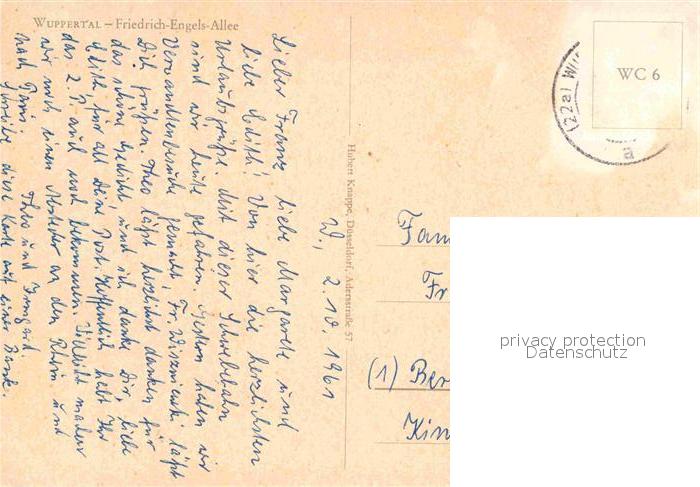 WUPPERTAL – Friedrich-Engels-Allee
WC 6
(22a) Wu
a
Hubert Knüppe, Düsseldorf, Adersstraße 57
W., 2.10.1961
Lieber Franz, liebe Margarete und
liebe Edith! Von hier die herzlichsten
Urlaubsgrüße. Mit dieser Schwebebahn
sind wir heute gefahren. Gestern haben wir
Verwandtenbesuch gemacht, Fr. läßt
Dich grüßen. Theo läßt herzlichst danken für
das schöne Gedicht und ich danke Dir, liebe
Edith, für all Deine Post. Hoffentlich habt Ihr
das 2. P. auch noch bekommen. Vielleicht machen
wir noch einen Abstecher an den Rhein und
nach Paris
Theo und Irmgard
Schreibe diese Karte auf einer Bank.
Fam
Fr
(1) Ber
Kin
privacy protection
Datenschutz